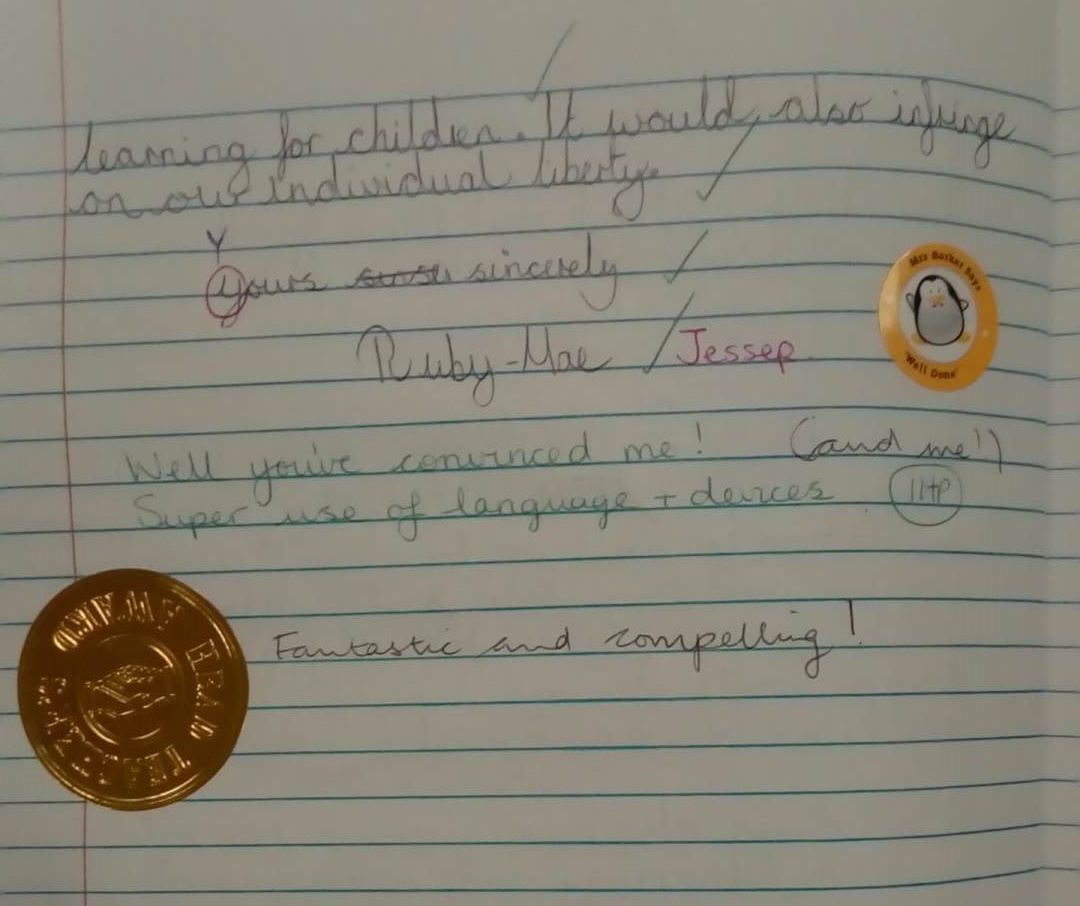 learning for children. It would, also infringe
on our individual liberty.
Y
yours sincerely
Ruby-Mae Jessep
Mrs Barkat Says
'Well Done'
Well you've convinced me! (and me!)
Super use of language + devices 1HP
HEAD TEACHER'S AWARD
Fantastic and compelling!